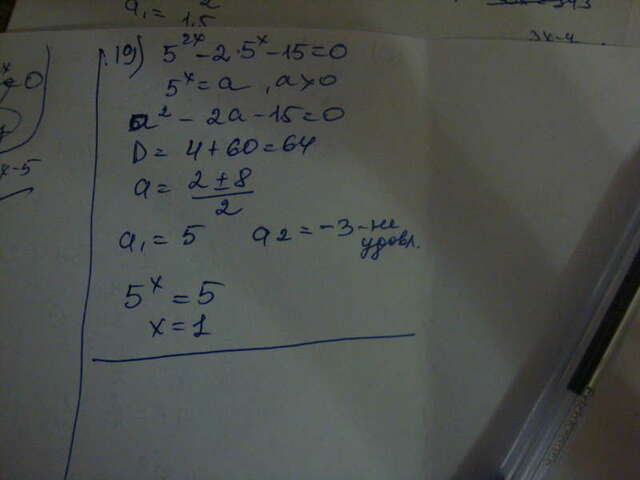 a₁ = 2
1.5
3x-4
x = 0
x-5
19) 5^2x - 2·5^x - 15 = 0
5^x = a , a > 0
a² - 2a - 15 = 0
D = 4 + 60 = 64
a = (2 ± 8)/2
a₁ = 5 a2 = -3 - не удовл.
5^x = 5
x = 1